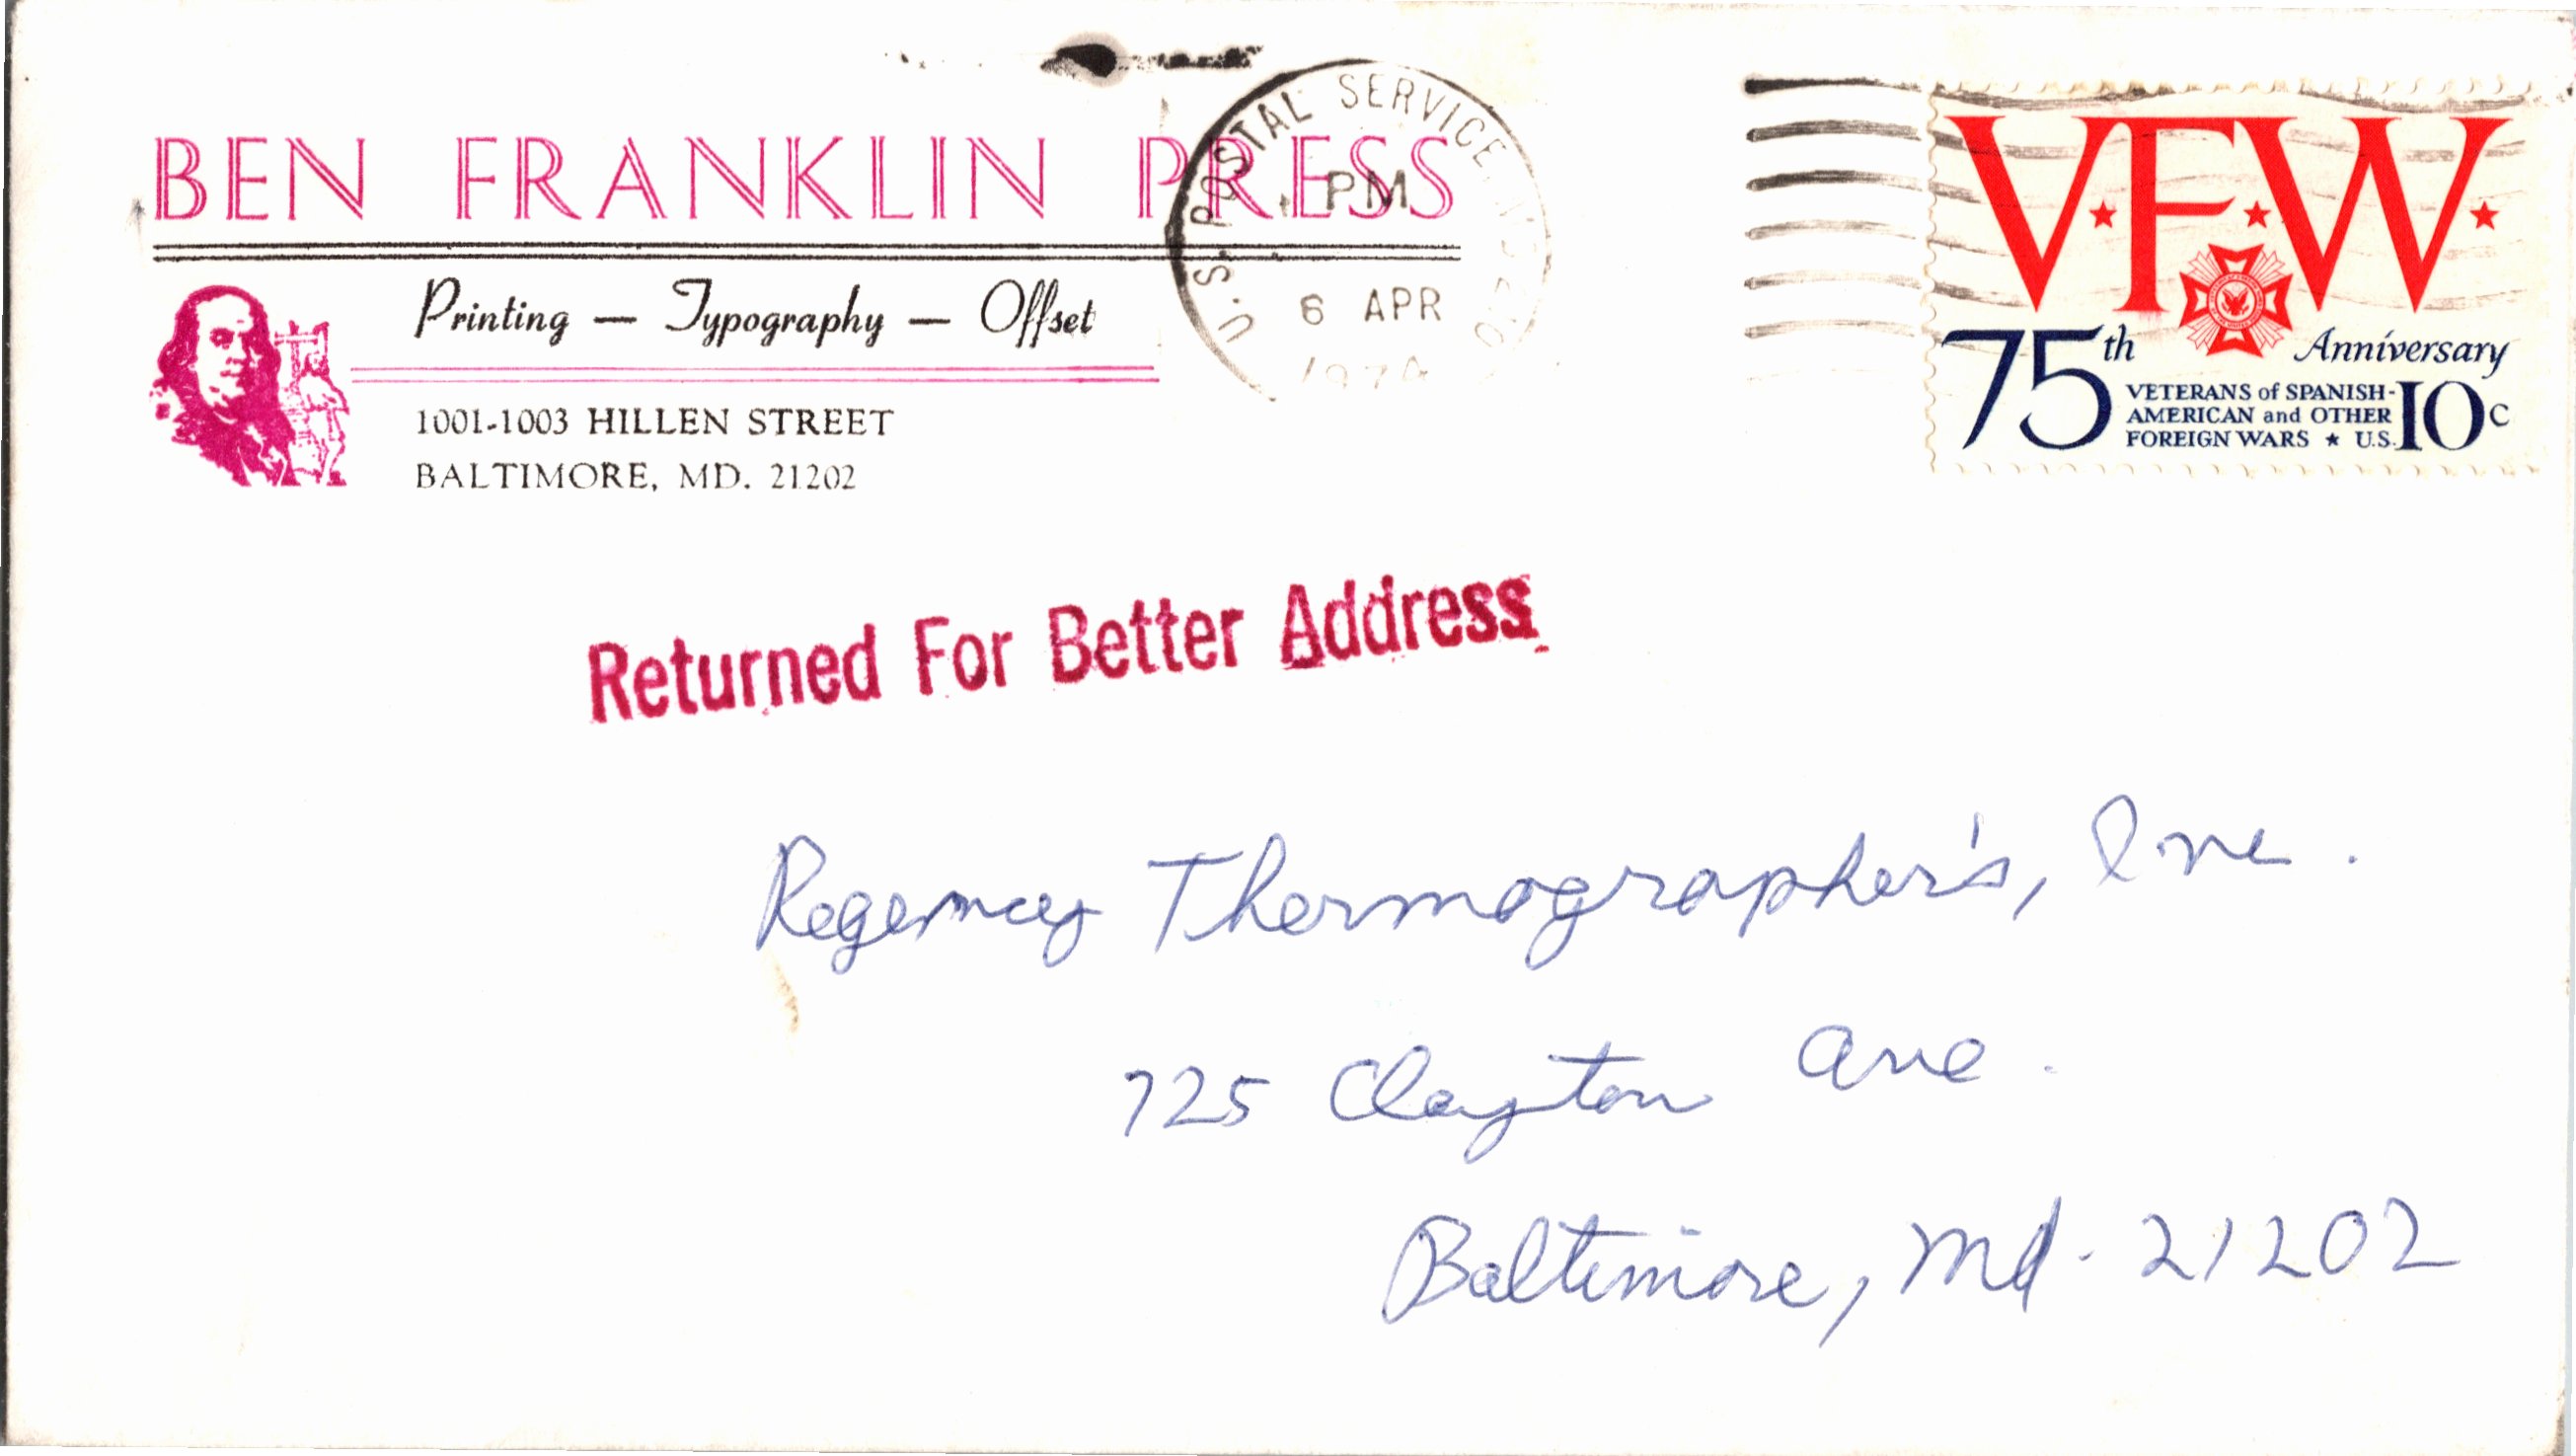 BEN FRANKLIN PRESS
Printing — Typography — Offset
1001-1003 HILLEN STREET
BALTIMORE, MD. 21202
U.S. POSTAL SERVICE
PM
6 APR
1974
V.F.W.
75th Anniversary
VETERANS of SPANISH-
AMERICAN and OTHER
FOREIGN WARS ★ U.S. 10c
Returned For Better Address
Regency Thermographer's, Inc.
725 Clayton Ave.
Baltimore, Md. 21202